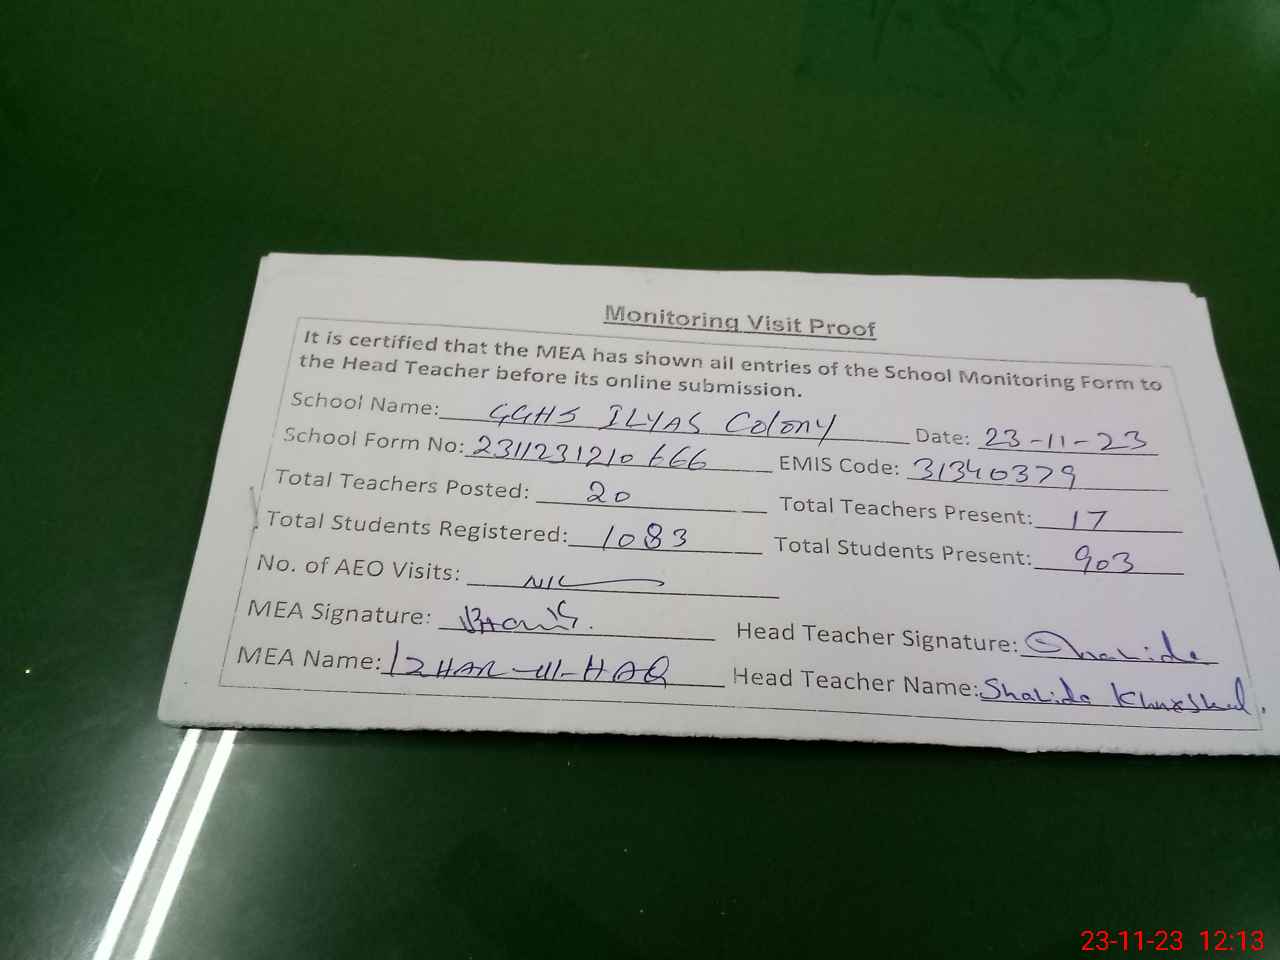 Monitoring Visit Proof
It is certified that the MEA has shown all entries of the School Monitoring Form to
the Head Teacher before its online submission.
School Name: GGHS ILYAS Colony Date: 23-11-23
School Form No: 2311231210666 EMIS Code: 31340379
Total Teachers Posted: 20 Total Teachers Present: 17
Total Students Registered: 1083 Total Students Present: 903
No. of AEO Visits: NIL
MEA Signature: Head Teacher Signature: Shahida
MEA Name: IZHAR-UL-HAQ Head Teacher Name: Shahida Khurshed.
23-11-23 12:13